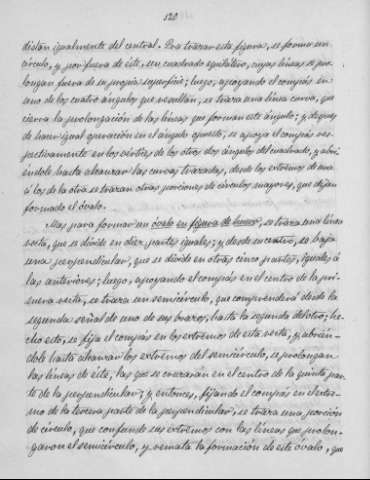 120
distan igualmente del central. Para trazar esta figura, se forma un
círculo, y por fuera de éste, un cuadrado equilátero, cuyas líneas se pro-
longan fuera de su propia superficie; luego, apoyando el compás en
uno de los cuatro ángulos que resultan, se traza una línea curva, que
cierra la prolongación de las líneas que forman este ángulo; y después
de hacer igual operación en el ángulo opuesto, se apoya el compás res-
pectivamente en los vértices de los otros dos ángulos del cuadrado, y abrién-
dole hasta alcanzar las curvas trazadas, desde los extremos de una
á los de la otra se trazan otras porciones de círculos mayores, que dejan
formado el óvalo.
Mas para formar un óvalo en figura de huevo, se traza una línea
recta, que se divide en diez partes iguales; y desde su centro, se baja
una perpendicular, que se divide en otras cinco partes, iguales á
las anteriores; luego, apoyando el compás en el centro de la pri-
mera recta, se traza un semicírculo, que comprenderá desde la
segunda señal de uno de sus brazos, hasta la segunda del otro; he-
cho esto, se fija el compás en los extremos de esta recta, y abrién-
dole hasta alcanzar los extremos del semicírculo, se prolongan
las líneas de éste, las que se cruzarán en el centro de la quinta par-
te de la perpendicular; y entonces, fijando el compás en el extre-
mo de la tercera parte de la perpendicular, se traza una porción
de círculo, que confunde sus extremos con las líneas que prolon-
garon el semicírculo, y remata la formación de este óvalo, que